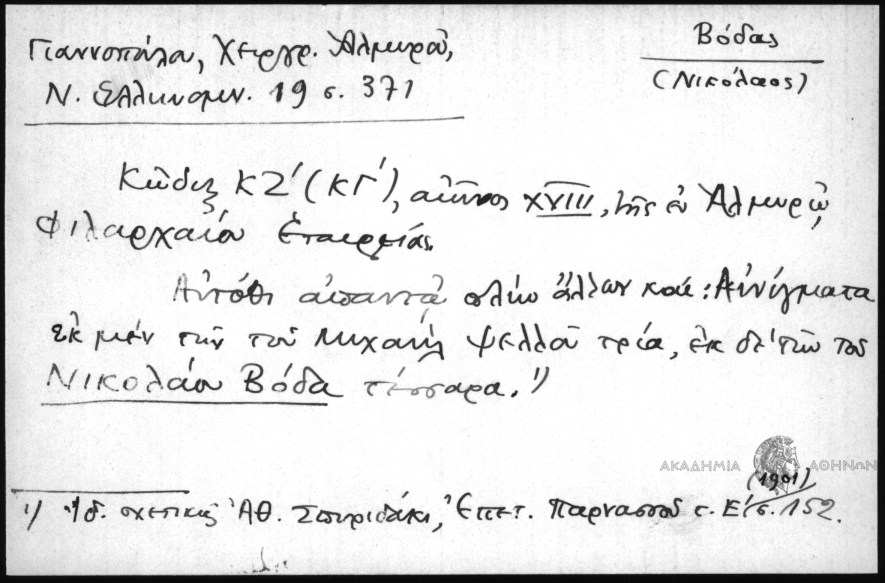 Γιαννοπούλου, Χειργρ. Ἁλμυροῦ,
Ν. Ἑλληνομν. 19 σ. 371
Βόδας
(Νικόλαος)
Κῶδιξ ΚΖ' (ΚΓ'), αἰῶνος XVIII, τῆς ἐν Ἁλμυρῷ
Φιλαρχαίου Ἑταιρείας.
Αὐτόθι ἀπαντᾷ πλὴν ἄλλων καὶ: Αἰνίγματα
ἐκ μὲν τῶν τοῦ Μιχαὴλ Ψελλοῦ τρία, ἐκ δὲ τῶν τοῦ
Νικολάου Βόδα τέσσαρα. 1)
ΑΚΑΔΗΜΙΑ ΑΘΗΝΩΝ
(1901)
1) Ἰδ. σχετικῶς Ἀθ. Σπυριδάκι, Ἐπετ. Παρνασσοῦ τ. Ε' σ. 152.